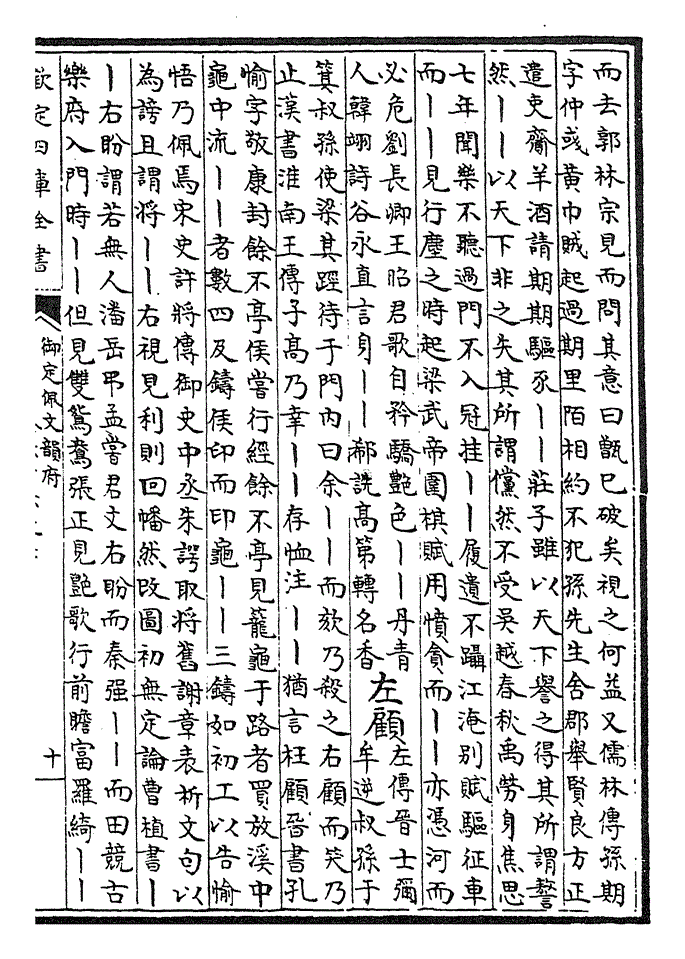 而去郭林宗見而問其意曰甑已破矣視之何益又儒林傳孫期
字仲彧黄巾賊起過期里陌相約不犯孫先生舍郡舉賢良方正
遣吏齎羊酒請期期驅豕丨丨莊子雖以天下譽之得其所謂謷
然丨丨以天下非之失其所謂儻然不受吳越春秋禹勞身焦思
七年聞樂不聽過門不入冠挂丨丨履遺不躡江淹别賦驅征車
而丨丨見行塵之時起梁武帝圍棋賦用憤貪而丨丨亦憑河而
必危劉長卿王昭君歌自矜驕艷色丨丨丹青
人韓翊詩谷永直言身丨丨郗詵高第轉名香
左顧
左傳晉士彌
牟逆叔孫于
箕叔孫使梁其踁待于門内曰余丨丨而欬乃殺之右顧而笑乃
止漢書淮南王傳子高乃幸丨丨存恤注丨丨猶言枉顧晉書孔
愉字敬康封餘不亭侯嘗行經餘不亭見籠龜于路者買放溪中
龜中流丨丨者數四及鑄侯印而印龜丨丨三鑄如初工以告愉
悟乃佩焉宋史許將傳御史中丞朱諤取將舊謝章表析文句以
為謗且謂將丨丨右視見利則回幡然改圖初無定論曹植書丨
丨右盼謂若無人潘岳弔孟嘗君文右盼而秦强丨丨而田競古
樂府入門時丨丨但見雙鴛鴦張正見艶歌行前瞻富羅綺丨丨
欽定四庫全書
御定佩文韻府
十